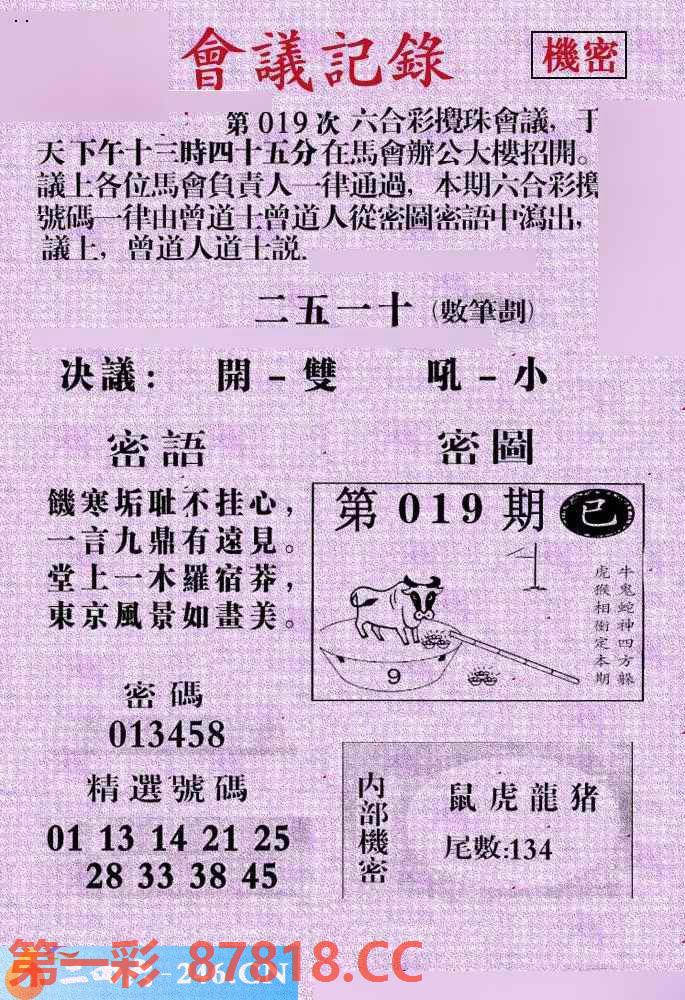 會議記錄
機密
第019次 六合彩攪珠會議，于
天下午十三時四十五分在馬會辦公大樓招開。
議上各位馬會負責人一律通過，本期六合彩攪
號碼一律由曾道士曾道人從密圖密語中瀉出，
議上，曾道人道士説.
二五一十（數筆劃）
决議： 開－雙 吼－小
密語
饑寒垢耻不挂心，
一言九鼎有遠見。
堂上一木羅宿莽，
東京風景如畫美。
密圖
第019期 已
牛鬼蛇神四方躲
虎猴相衝定本期
9
密碼
013458
精選號碼
01 13 14 21 25
28 33 38 45
内部機密
鼠虎龍猪
尾數:134
第一彩 87818.CC
246.CN